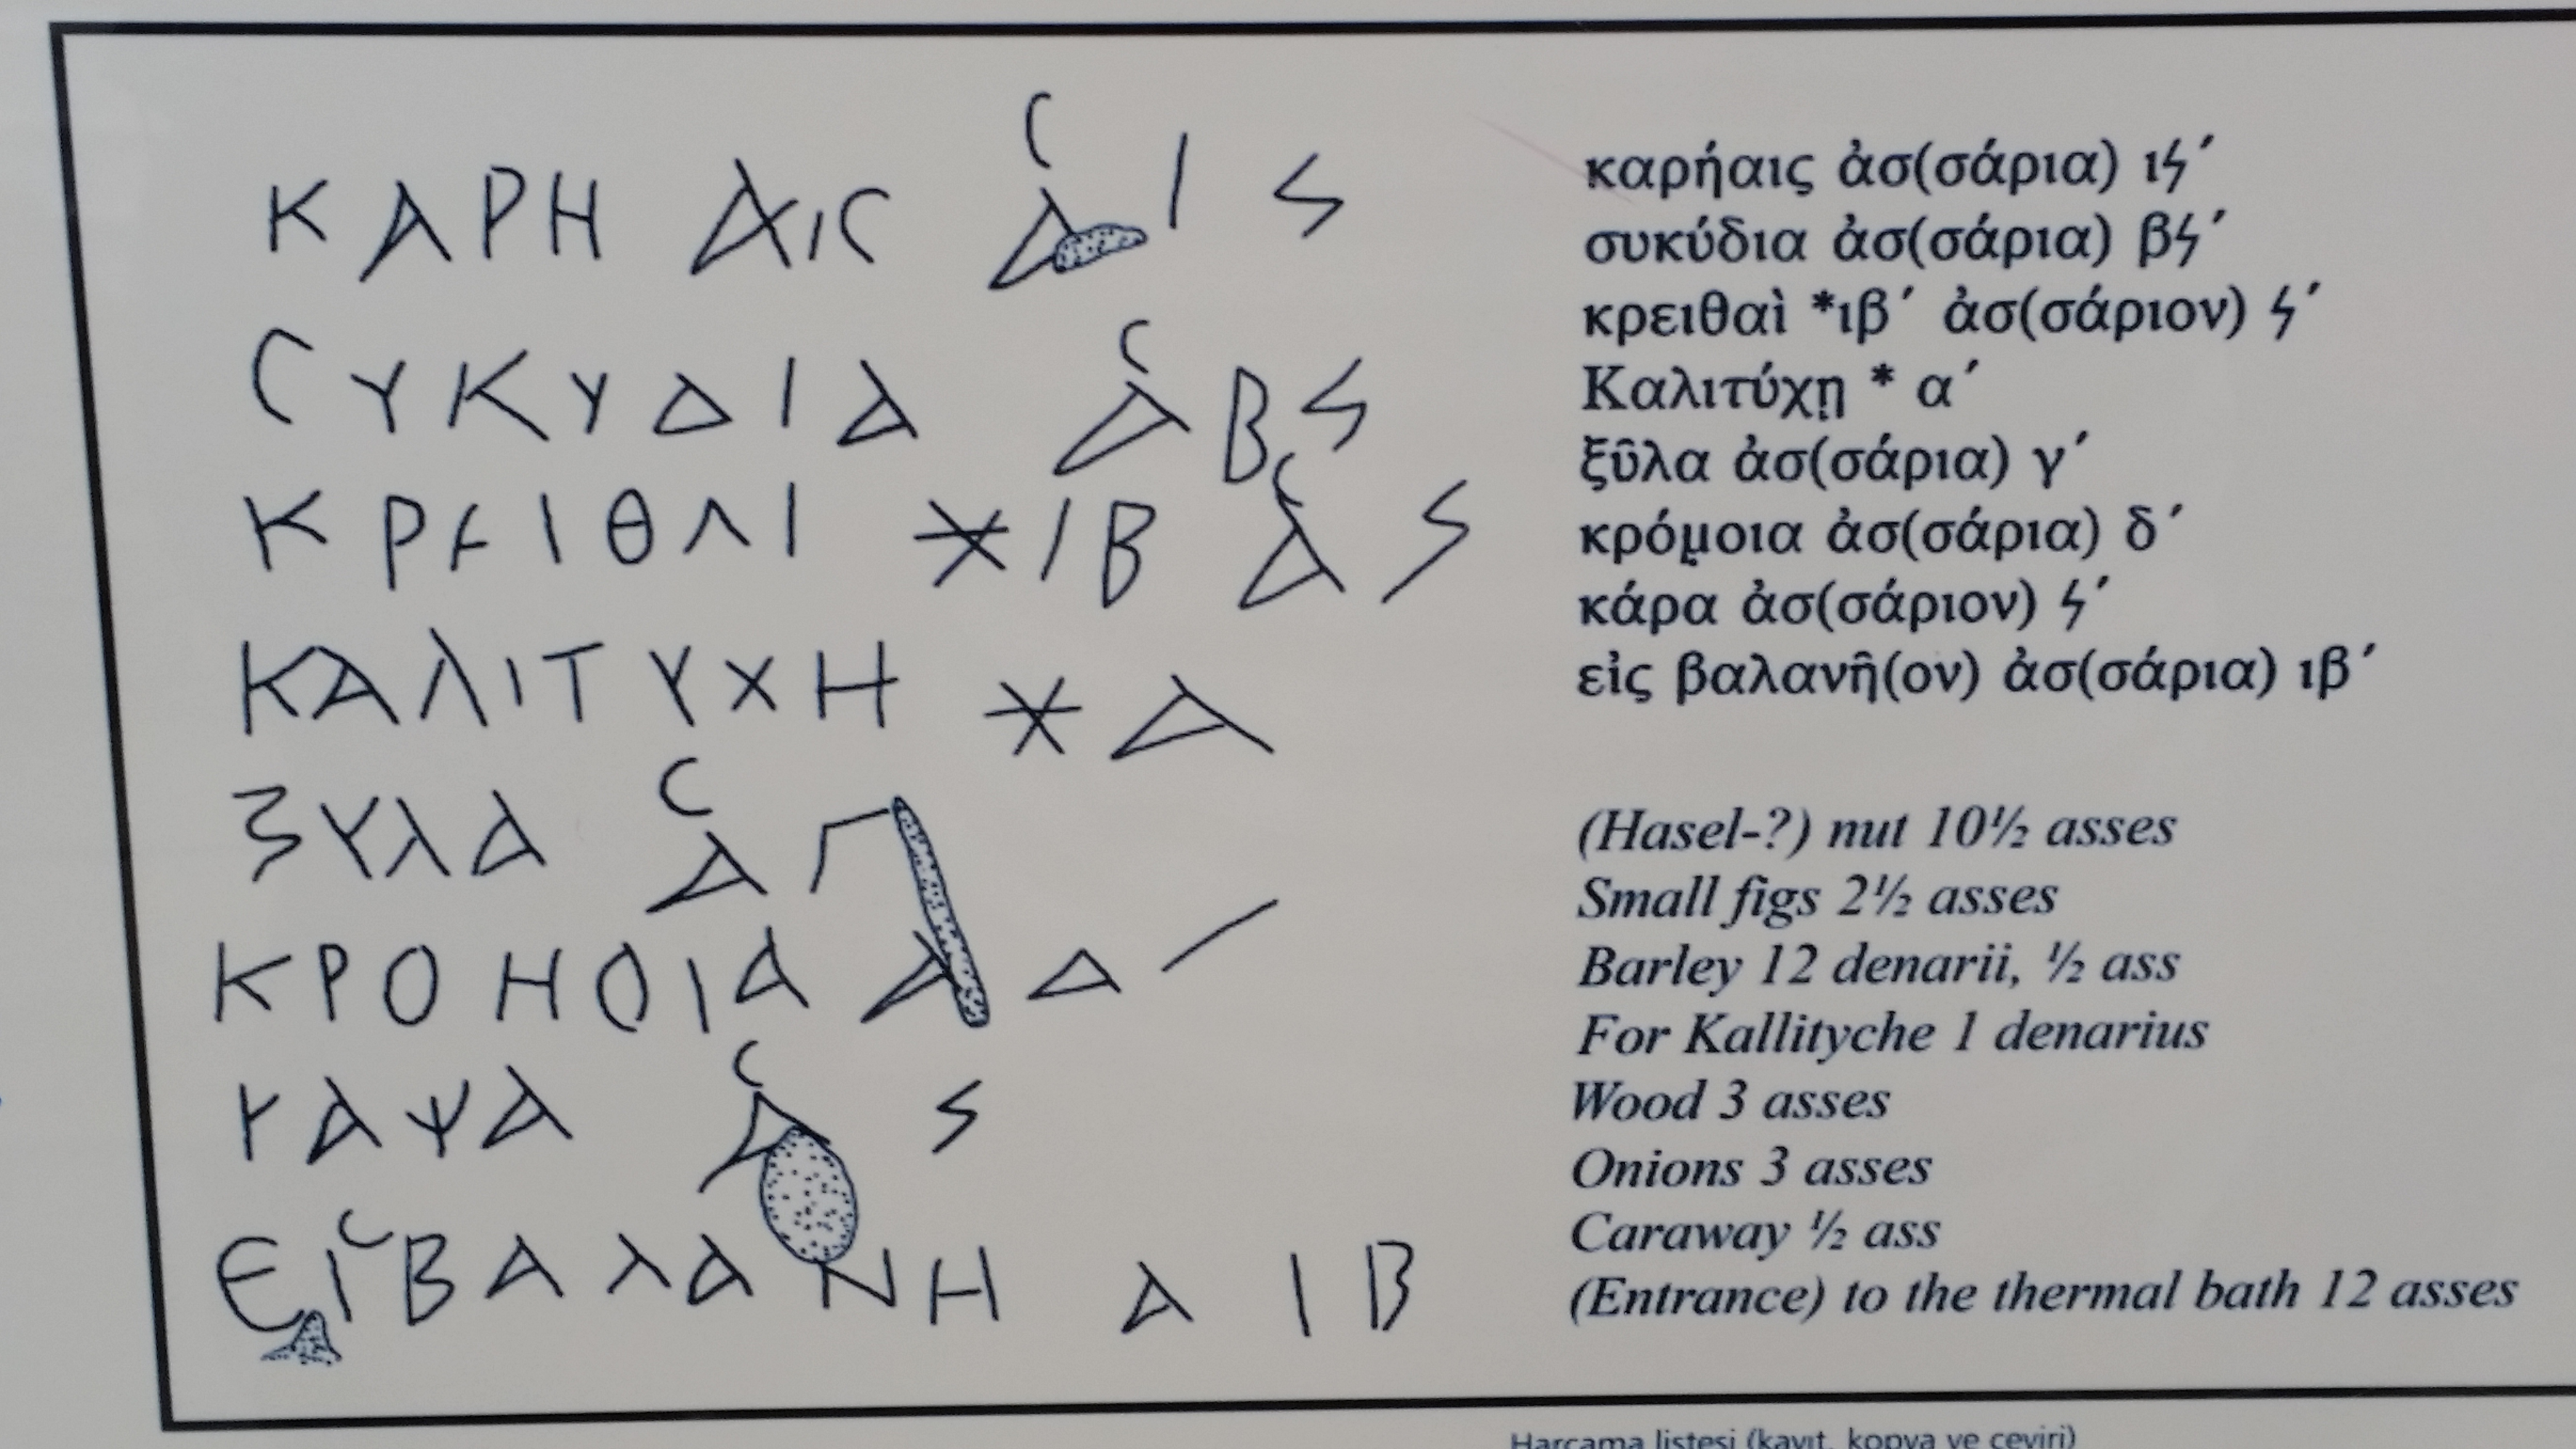 ΚΑΡΗ ΑΙϹ ΑϹ Ι ϟ
ϹΥΚΥΔΙΑ ΑϹ Βϟ
ΚΡΕΙΘΛΙ *ΙΒ ΑϹ ϟ
ΚΑΛΙΤΥΧΗ *Α
ΞΥΛΑ ΑϹ Γ
ΚΡΟΗΟΙΑ Α Δ ⁄
ΚΑΨΑ ΑϹ ϟ
ΕΙϹΒΑΛΑΝΗ Α ΙΒ
καρήαις ἀσ(σάρια) ιϟ´
συκύδια ἀσ(σάρια) βϟ´
κρειθαὶ *ιβ´ ἀσ(σάριον) ϟ´
Καλιτύχῃ * α´
ξῦλα ἀσ(σάρια) γ´
κρόμ̣οια ἀσ(σάρια) δ´
κάρα ἀσ(σάριον) ϟ´
εἰς βαλανῆ(ον) ἀσ(σάρια) ιβ´
(Hasel-?) nut 10½ asses
Small figs 2½ asses
Barley 12 denarii, ½ ass
For Kallityche 1 denarius
Wood 3 asses
Onions 3 asses
Caraway ½ ass
(Entrance) to the thermal bath 12 asses
Harcama listesi (kayıt, kopya ve çeviri)